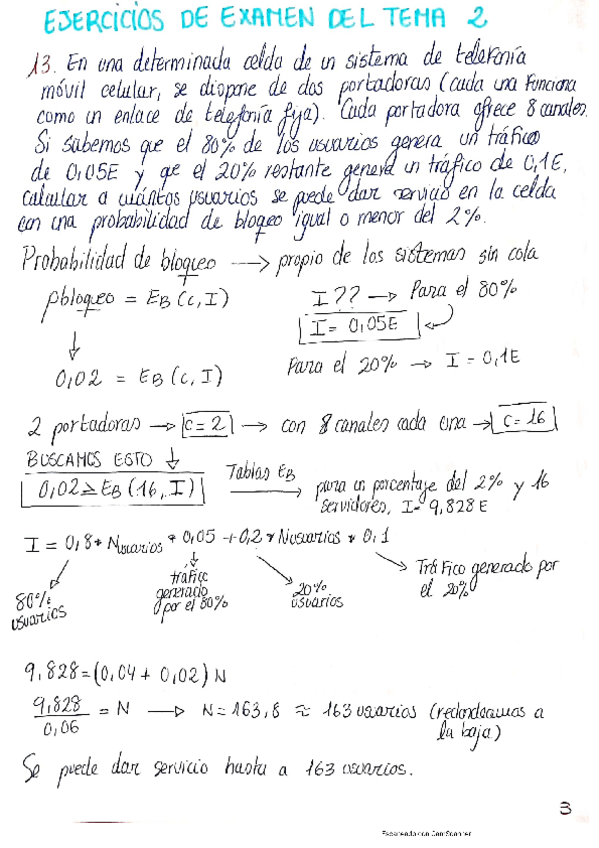 EJERCICIOS DE EXAMEN DEL TEMA 2
13. En una determinada celda de un sistema de telefonía
móvil celular, se dispone de dos portadoras (cada una funciona
como un enlace de telefonía fija). Cada portadora ofrece 8 canales.
Si sabemos que el 80% de los usuarios genera un tráfico
de 0,05E y que el 20% restante genera un tráfico de 0,1E,
calcular a cuántos usuarios se puede dar servicio en la celda
con una probabilidad de bloqeo igual o menor del 2%.
Probabilidad de bloqueo → propio de los sistemas sin cola
Pbloqueo = EB (c, I)
I?? → Para el 80%
I = 0,05E
0,02 = EB (c, I)
Para el 20% → I = 0,1E
2 portadoras → c = 2 → con 8 canales cada una → c = 16
BUSCAMOS ESTO ↓
0,02 ≥ EB (16, I)
Tablas EB
→ para un porcentaje del 2% y 16
servidores, I = 9,828 E
I = 0,8 * Nusuarios * 0,05 + 0,2 * Nusuarios * 0,1
80% usuarios
tráfico generado por el 80%
20% usuarios
Tráfico generado por
el 20%
9,828 = (0,04 + 0,02) N
9,828/0,06 = N → N = 163,8 ≈ 163 usuarios (redondeamos a
la baja)
Se puede dar servicio hasta a 163 usuarios.
3
Escaneado con CamScanner